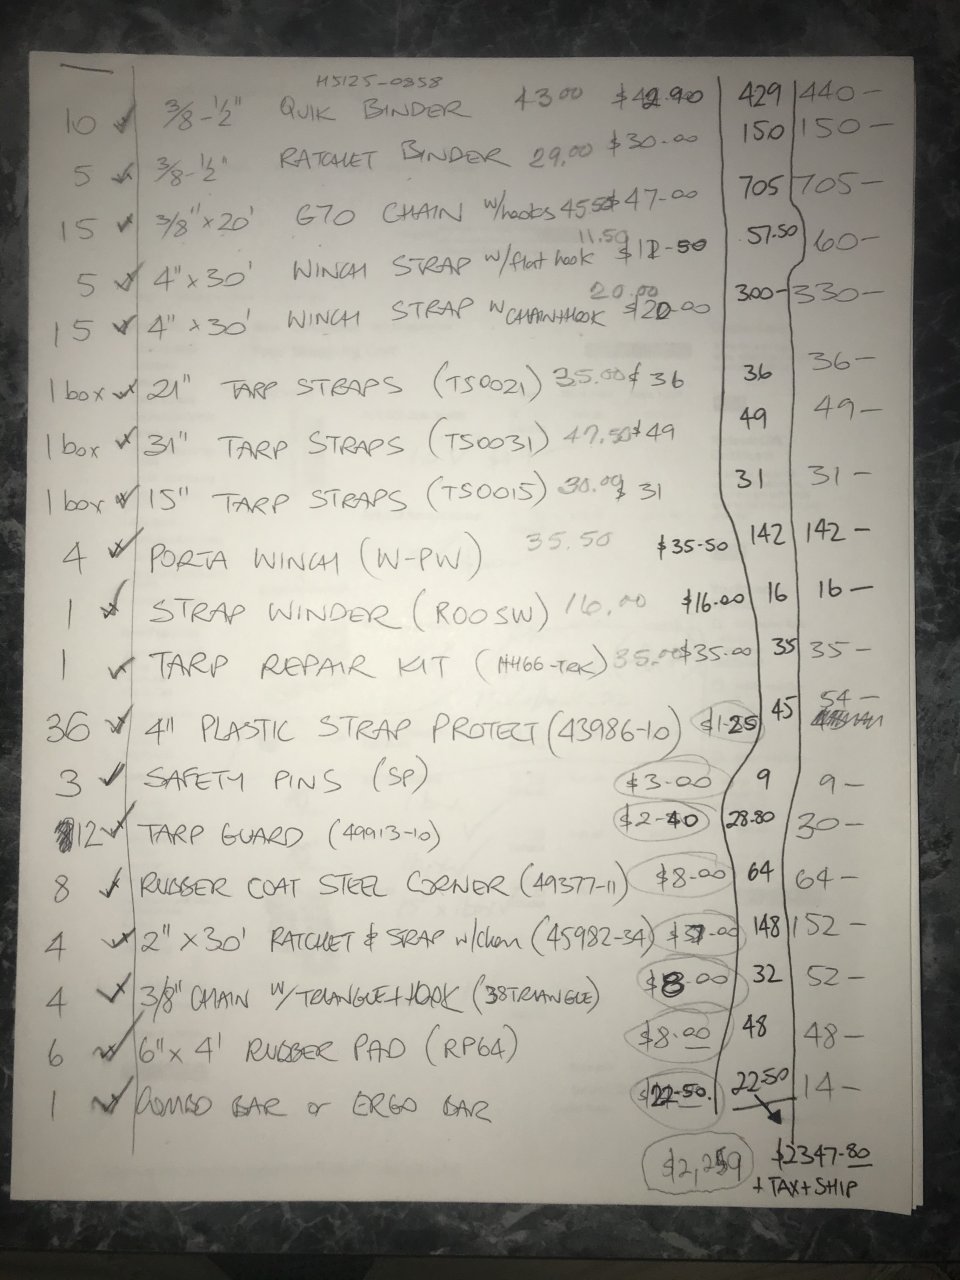 H5125-0858
10 3/8-1/2" QUIK BINDER 43.00 $42.90 429 440-
5 3/8-1/2" RATCHET BINDER 29.00 $30.00 150 150-
15 3/8" x 20' G70 CHAIN w/hooks 45.50 $47.00 705 705-
5 4" x 30' WINCH STRAP w/flat hook 11.50 50 57.50 60-
15 4" x 30' WINCH STRAP w CHAIN+HOOK 20.00 $20.00 300- 330-
1 box 21" TARP STRAPS (TS0021) 35.00 $36 36 36-
1 box 31" TARP STRAPS (TS0031) 47.50 $49 49 49-
1 box 15" TARP STRAPS (TS0015) 30.00 $31 31 31-
4 PORTA WINCH (W-PW) 35.50 $35.50 142 142-
1 STRAP WINDER (ROOSW) 16.00 $16.00 16 16-
1 TARP REPAIR KIT (H466-TEK) 35.00 $35.00 35 35-
36 4" PLASTIC STRAP PROTECT (43986-10) $1.25 45 54-
3 SAFETY PINS (SP) $3.00 9 9-
12 TARP GUARD (49913-10) $2.40 28.80 30-
8 RUBBER COAT STEEL CORNER (49377-11) $8.00 64 64-
4 2" x 30' RATCHET & STRAP w/chain (45982-34) $37.00 148 152-
4 3/8" CHAIN w/TRIANGLE+HOOK (38TRIANGLE) $8.00 32 52-
6 6" x 4' RUBBER PAD (RP64) $8.00 48 48-
1 COMBO BAR or ERGO BAR $22.50. 22.50 14-
$2347.80
+ TAX + SHIP